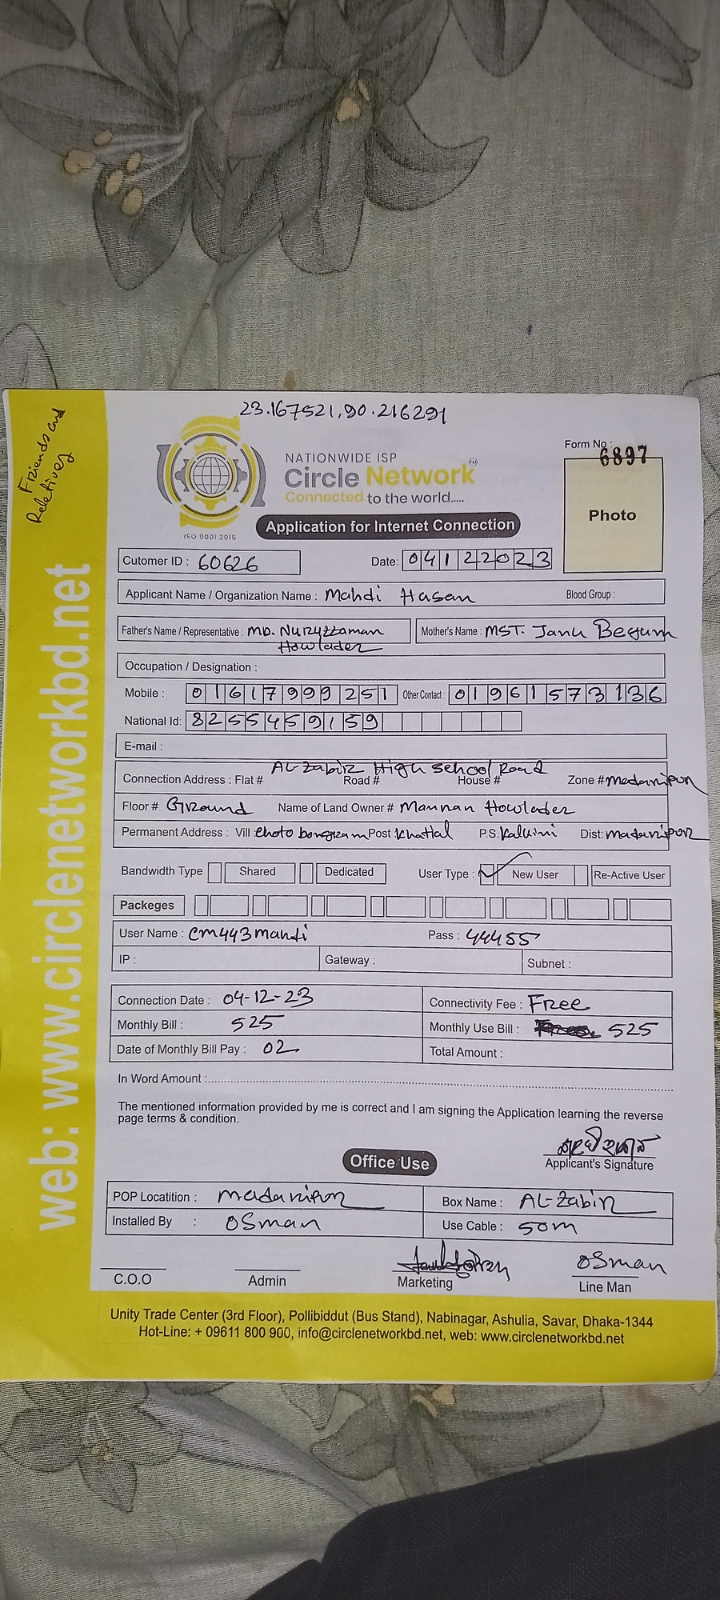 23.167521,90.216291
Friends and
Relatives
NATIONWIDE ISP
Circle Network™
Connected to the world.....
ISO 9001:2015
Application for Internet Connection
Form No : 6897
Photo
Cutomer ID : 60626
Date: 04122023
Applicant Name / Organization Name : Mahdi Hasan Blood Group :
Father's Name / Representative : MD. Nuruzzaman Howlader
Mother's Name : MST. Janu Begum
Occupation / Designation :
Mobile : 01617999251 Other Contact : 01961573136
National Id: 8255459159
E-mail :
AL-Zabir High school Road
Connection Address : Flat # Road # House # Zone # madaripur
Floor # Ground Name of Land Owner # Mannan Howlader
Permanent Address : Vill choto bongram Post Khattal P.S Kalkini Dist: madaripur
Bandwidth Type Shared Dedicated User Type : New User Re-Active User
Packeges
User Name : cm443mahdi Pass : 44455
IP : Gateway : Subnet :
Connection Date : 04-12-23 Connectivity Fee : Free
Monthly Bill : 525 Monthly Use Bill : 525
Date of Monthly Bill Pay : 02 Total Amount :
In Word Amount :
The mentioned information provided by me is correct and I am signing the Application learning the reverse
page terms & condition.
মাহদি হাসান
Applicant's Signature
Office Use
POP Locatition : madaripur Box Name : AL-Zabir
Installed By : OSman Use Cable : 50m
OSman
C.O.O Admin Marketing Line Man
Unity Trade Center (3rd Floor), Pollibiddut (Bus Stand), Nabinagar, Ashulia, Savar, Dhaka-1344
Hot-Line: + 09611 800 900, info@circlenetworkbd.net, web: www.circlenetworkbd.net
web: www.circlenetworkbd.net